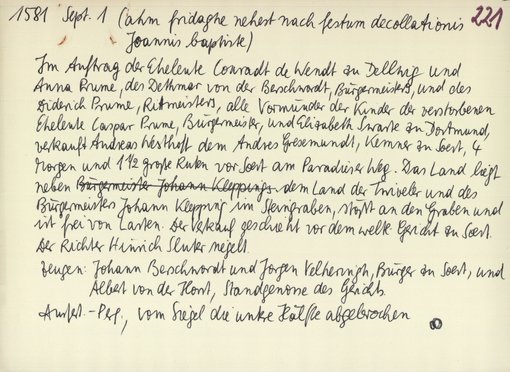 1581 Sept. 1 (ahm fridaghe nehest nach festum decollationis 221
Joannis baptiste)
Im Auftrag der Eheleute Conradt de Wendt zu Dellwig und
Anna Prume, des Dethmar von der Berschwordt, Bürgermeisters, und des
Diderich Prume, Ritmeisters, alle Vormünder der Kinder der verstorbenen
Eheleute Caspar Prume, Bürgermeister, und Elizabeth Swarte zu Dortmund,
verkauft Andreas Westhoff dem Andres Gresemundt, Kemner zu Soest, 4
Morgen und 1 1/2 große Ruten vor Soest am Paradieser Weg. Das Land liegt
neben Bürgermeister Johann Kleppings dem Land der Twiveler und des
Bürgermeisters Johann Klepping im Steingraben, stößt an den Graben und
ist frei von Lasten. Der Verkauf geschieht vor dem weltl. Gericht zu Soest.
Der Richter Hinrich Sluter siegelt.
Zeugen: Johann Berschwordt und Jorgen Velheringh, Bürger zu Soest, und
Albert von der Horst, Standgenosse des Gerichts.
Ausfert.-Perg., vom Siegel die untere Hälfte abgebrochen